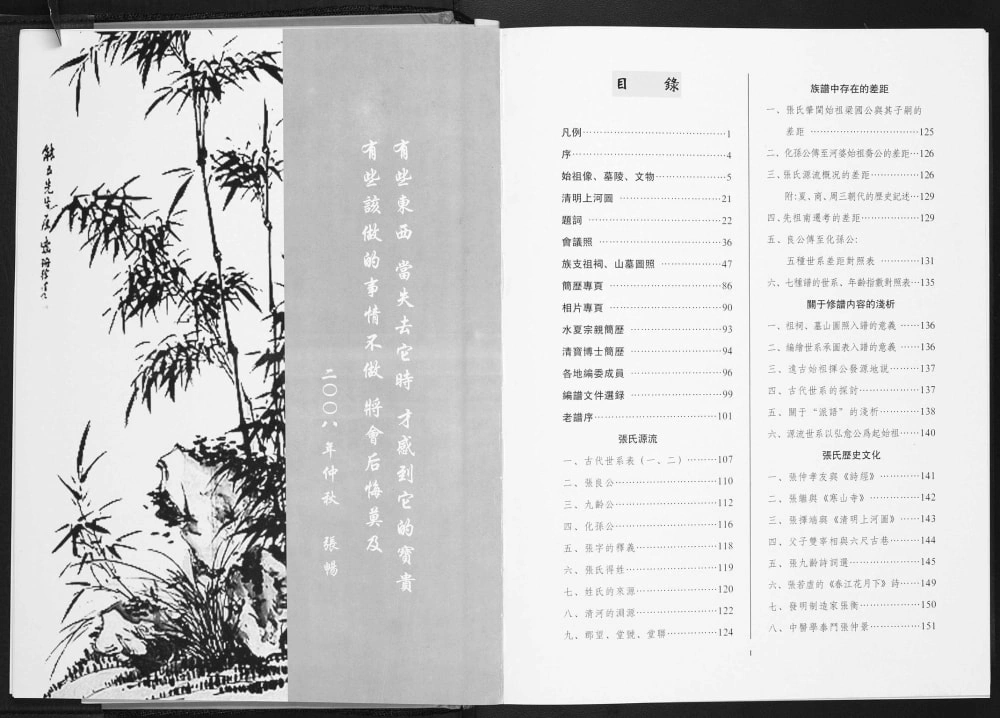 有些東西 當失去它時 才感到它的寶貴
有些該做的事情不做 將會后悔莫及
二〇〇八年仲秋 張暢
目 錄
凡例……1
序……4
始祖像、墓陵、文物……5
清明上河圖……21
題詞……22
會議照……36
族支祖祠、山墓圖照……47
簡歷專頁……86
相片專頁……90
水夏宗親簡歷……93
清寶博士簡歷……94
各地編委成員……96
編譜文件選錄……99
老譜序……101
張氏源流
一、古代世系表（一、二）……107
二、張良公……110
三、九齡公……112
四、化孫公……116
五、張字的釋義……118
六、張氏得姓……119
七、姓氏的來源……120
八、清河的淵源……122
九、郡望、堂號、堂聯……124
族譜中存在的差距
一、張氏肇開始祖梁國公與其子嗣的
差距……125
二、化孫公傳至河婆始祖裔公的差距…126
三、張氏源流概况的差距……126
附:夏、商、周三朝代的歷史紀述…129
四、先祖南遷考的差距……129
五、良公傳至化孫公:
五種世系差距對照表……131
六、七種譜的世系、年齡指數對照表…135
關于修譜内容的淺析
一、祖祠、墓山圖照入譜的意義……136
二、編繪世系承圖表入譜的意義……136
三、遠古始祖揮公發源地説……137
四、古代世系的探討……137
五、關于“派語”的淺析……138
六、源流世系以弘愈公爲起始祖……140
張氏歷史文化
一、張仲孝友與《詩經》……141
二、張繼與《寒山寺》……142
三、張擇端與《清明上河圖》……143
四、父子雙宰相與六尺古巷……144
五、張九齡詩詞選……145
六、張若虛的《春江花月下》詩……149
七、發明制造家張衡……150
八、中醫學泰鬥張仲景……151
1